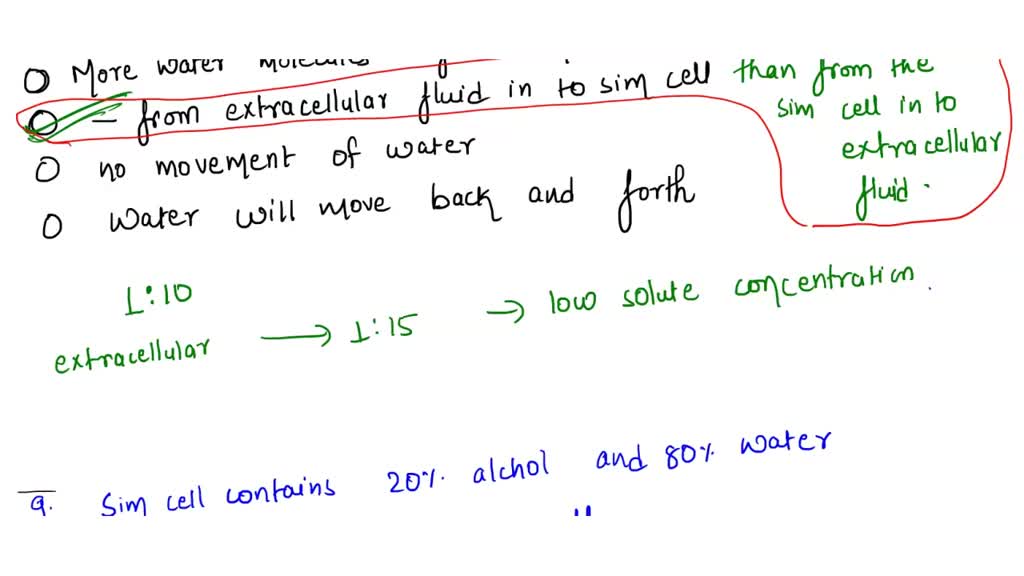 More water molecules
– from extracellular fluid in to sim cell than from the
sim cell in to
extracellular
fluid.
no movement of water
water will move back and forth
1:10
extracellular → 1:15 → low solute concentration.
9. Sim cell contains 20% alchol and 80% water